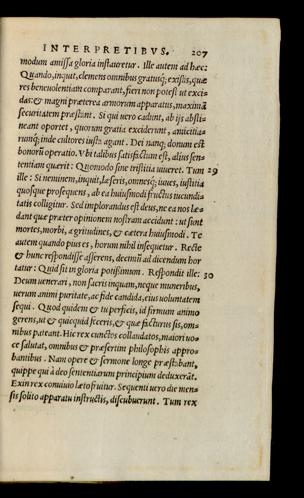 INTERPRETIBVS. 207
modum amissa gloria instauretur. Ille autem ad hæc:
Quando, inquit, clemens omnibus gratusq; existis, quæ
res beneuolentiam comparant, fieri non potest ut exci-
das: & magni præterea armorum apparatus, maximã
securitatem præstant. Si qui uero cadunt, ab ijs absti-
neant oportet, quorum gratia exciderunt, amicitia-
rumq; inde cultores iusta agant. Dei nanq; donum est
bonorũ operatio. Vbi talibus satisfactum est, alius sen-
tentiam quærit: Quomodo sine tristitia uiueret. Tum 29
ille: Si neminem, inquit, læseris, omnesq; iuues, iustitia
quosque prosequens, ab ea huiusmodi fructus iucundi-
tatis colligitur. Sed implorandus est deus, ne ea nos læ-
dant quæ præter opinionem nostram accidunt: ut sunt
mortes, morbi, ægritudines, & cætera huiusmodi. Te
autem quando pius es, horum nihil insequetur. Recte
& hunc respondisse asserens, decimũ ad dicendum hor
tatur: Quid sit in gloria potissimum. Respondit ille: 30
Deum uenerari, non sacris inquam, neque muneribus,
uerum animi puritate, ac fide candida, eius uoluntatem
sequi. Quod quidem & tu perficis, id firmum animo
gerens, ut & quicquid feceris, & quæ facturus sis, om-
nibus pateant. Hic rex cunctos collaudatos, maiori uo-
ce salutat, omnibus & præsertim philosophis appro-
bantibus. Nam opere & sermone longe præstabant,
quippe qui à deo sententiarum principium deduxerãt.
Exin rex conuiuio læto fruitur. Sequenti uero die men-
sis solito apparatu instructis, discubuerunt. Tum rex